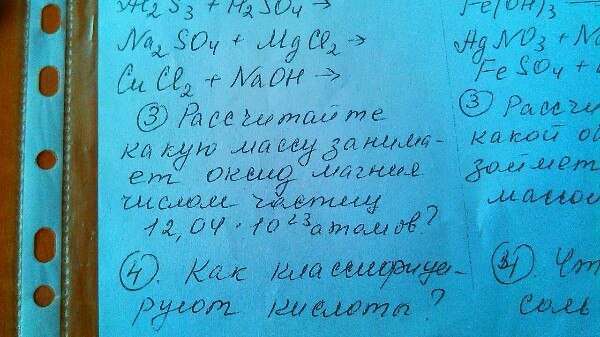 Al₂S₃ + H₂SO₄ →
Na₂SO₄ + MgCl₂ →
CuCl₂ + NaOH →
③ Рассчитайте
какую массу занима-
ет оксид магния
числом частиц
12,04 · 10²³ атомов?
④. Как классифици-
руют кислоты?
Fe(OH)₃
AgNO₃ +
FeSO₄ +
③
какой
займет
массой
④.
соль